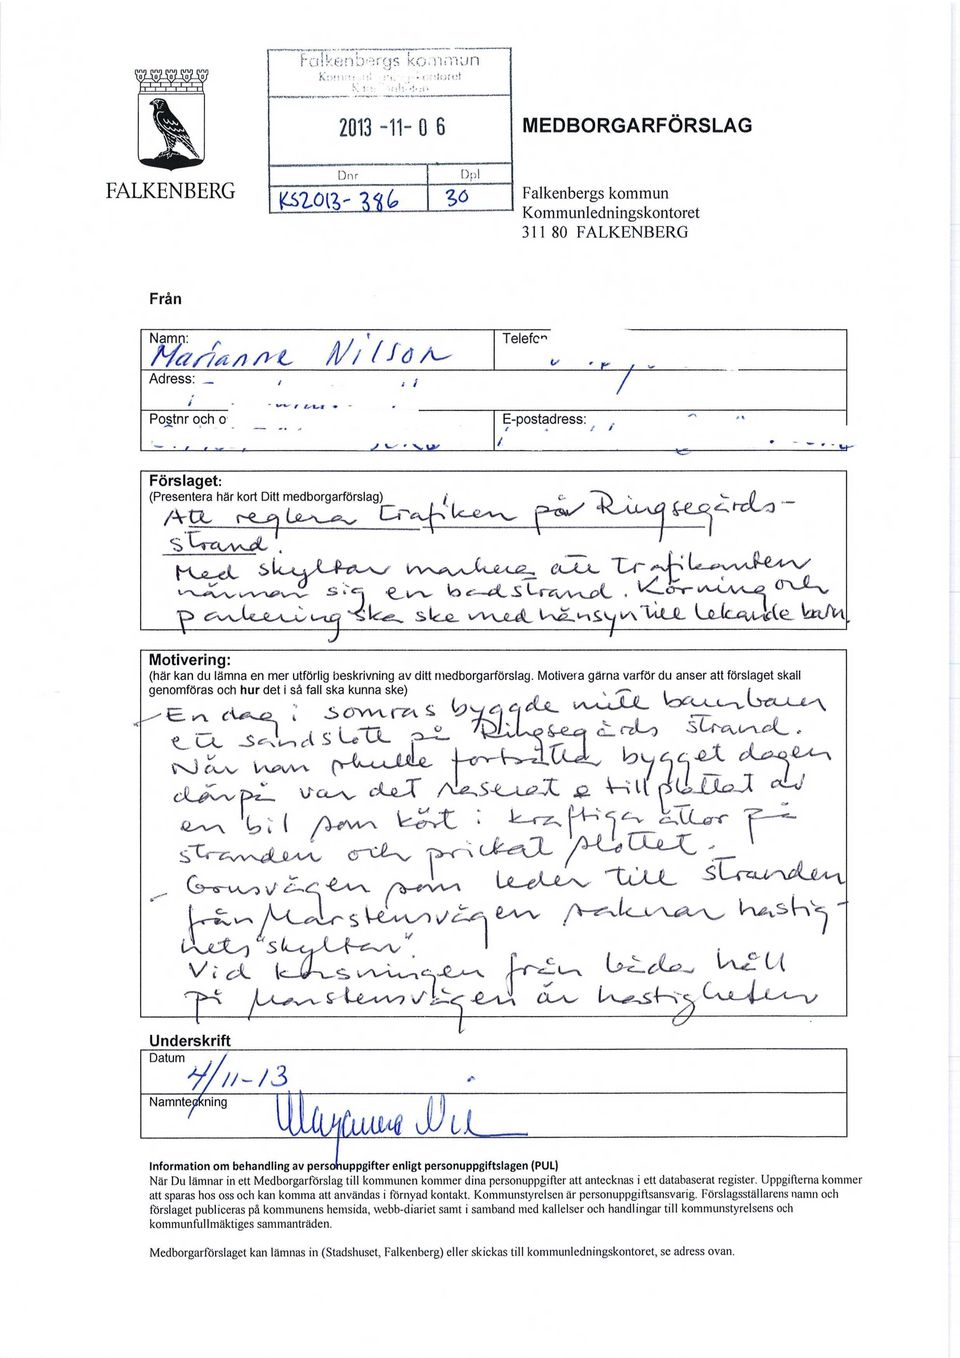 Falkenbergs kommun
2013 -11- 0 6
MEDBORGARFÖRSLAG
Dnr Dpl
KS2013- 386 30
FALKENBERG
Falkenbergs kommun
Kommunledningskontoret
311 80 FALKENBERG
Från
Namn: Telefon
Marianne Nilson
Adress:
Postnr och o E-postadress:
Förslaget:
(Presentera här kort Ditt medborgarförslag)
Att reglera trafiken på Ringsegårds-
strand.
Med skyltar markera att trafikanten
närmar sig en badstrand. Körning och
parkering ska ske med hänsyn till lekande barn.
Motivering:
(här kan du lämna en mer utförlig beskrivning av ditt medborgarförslag. Motivera gärna varför du anser att förslaget skall
genomföras och hur det i så fall ska kunna ske)
- En dag i somras byggde mitt barnbarn
ett sandslott på Ringsegårds strand.
När han skulle fortsätta bygget dagen
därpå var det raserat o tillplattat av
en bil som kört i kraftiga åttor på
stranden och prickat slottet.
- Gousvägen som leder till stranden
från Marstensvägen saknar hastig-
hets "skyltar".
Vid korsningen från båda håll
på Marstensvägen är hastigheten
Underskrift
Datum
4/11-13
Namnteckning
Marianne Nil
Information om behandling av personuppgifter enligt personuppgiftslagen (PUL)
När Du lämnar in ett Medborgarförslag till kommunen kommer dina personuppgifter att antecknas i ett databaserat register. Uppgifterna kommer
att sparas hos oss och kan komma att användas i förnyad kontakt. Kommunstyrelsen är personuppgiftsansvarig. Förslagsställarens namn och
förslaget publiceras på kommunens hemsida, webb-diariet samt i samband med kallelser och handlingar till kommunstyrelsens och
kommunfullmäktiges sammanträden.
Medborgarförslaget kan lämnas in (Stadshuset, Falkenberg) eller skickas till kommunledningskontoret, se adress ovan.